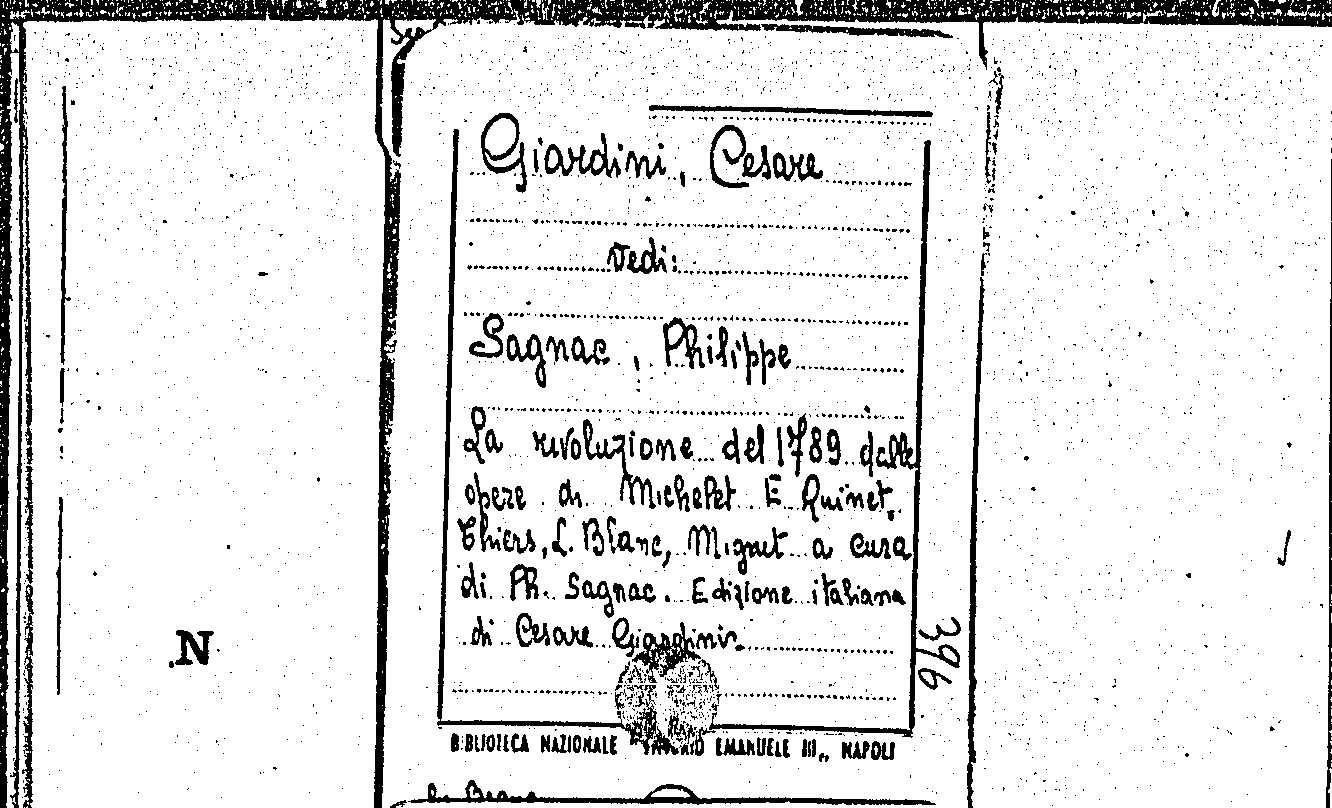 Giardini, Cesare
vedi:
Sagnac, Philippe
La rivoluzione del 1789 dalle
opere di Michelet E Quinet,
Thiers, L. Blanc, Mignet a cura
di Ph. Sagnac. Edizione italiana
di Cesare Giardini.
396
N
BIBLIOTECA NAZIONALE " EMANUELE III„ NAPOLI